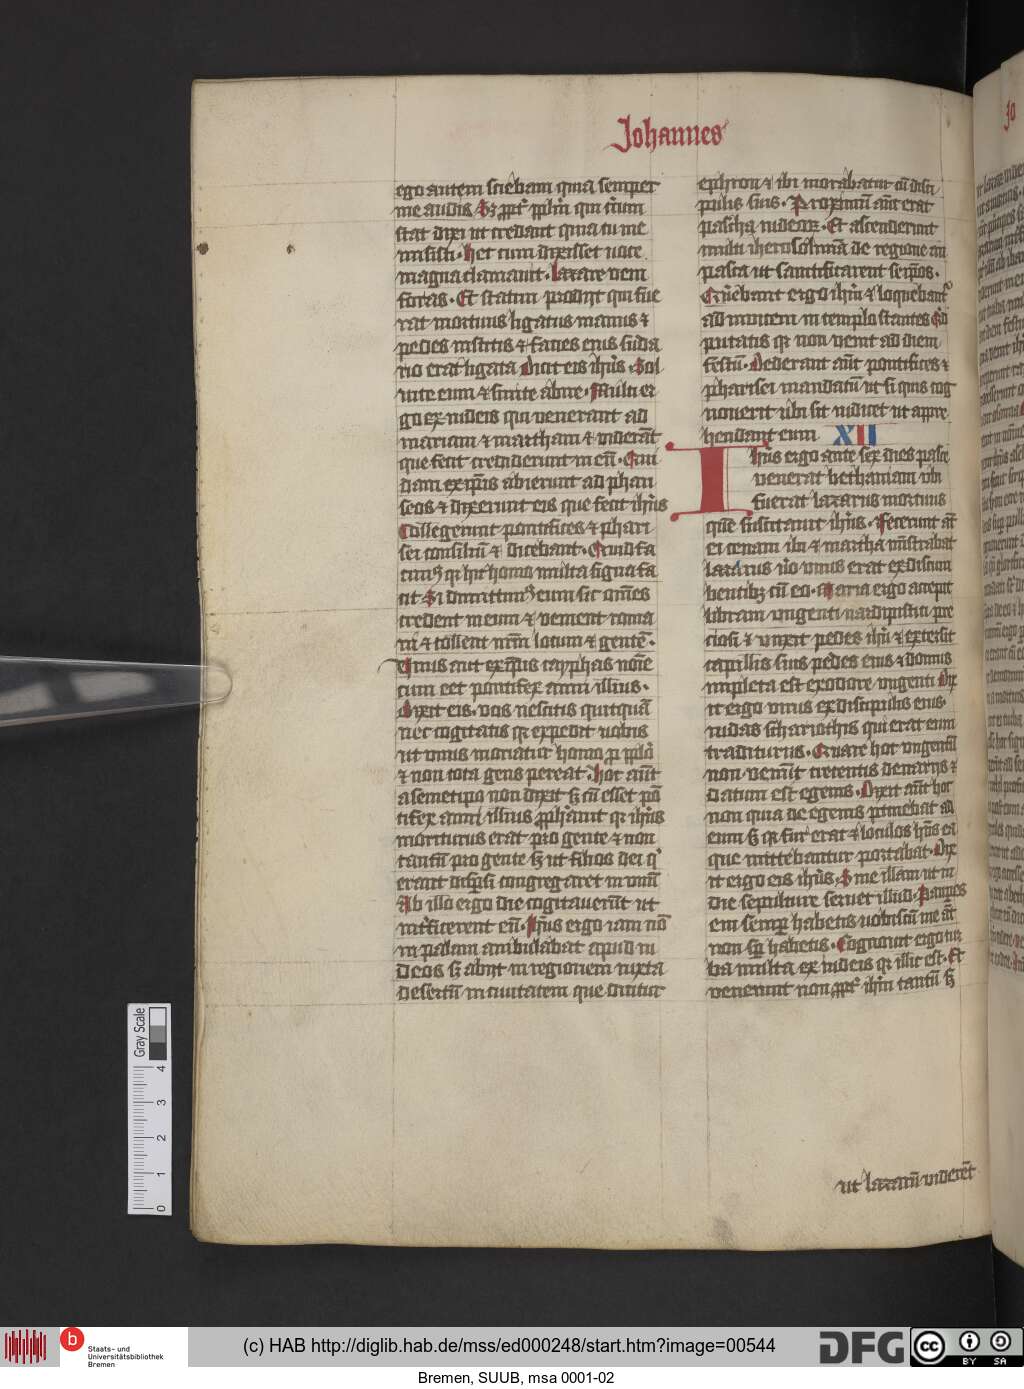 Johannes
ego autem sciebam quia semper
me audis S; ꝓpt̉ ppl̄m qui cīrcum
stat dixi ut credant quia tu me
misisti· hec cum dixisset uoce
magna clamauit· lazare veni
foras· Et statim prodijt qui fue
rat mortuus ligatus manus ⁊
pedes institis ⁊ facies eius suda
rio erat ligata Dicit eis ih̄us· Sol
uite eum ⁊ sinite abire· Multi er
go ex iudeis qui venerant ad
mariam ⁊ martham ⁊ viderāt
que fecit crediderunt in eū· Qui
dam ex ip̄is abierunt ad phari
seos ⁊ dixerunt eis que fecit ih̄us
Collegerunt pontifices ⁊ phari
sei consiliū ⁊ dicebant· Quid fa
cimꝰ qr̄ hic homo multa signa fa
cit· Si dimittimꝰ eum sic om̄es
credent in eum ⁊ venient roma
ni ⁊ tollent nr̄m locum ⁊ gentē·
Vnus aut̄ ex ip̄is cayphas noīe
cum eēt pontifex anni illius·
Dixit eis· vos nescitis quitquā
nec cogitatis qr̄ expedit uobis
ut vnus moriatur homo ꝓ pplō
⁊ non tota gens pereat· hoc aūt
a semetip̄o non dixit s; cū esset pō
tifex anni illius ꝓph̄auit qr̄ ih̄us
moriturus erat pro gente ⁊ non
tantū pro gente s; ut filios dei q̄
erant disp̄si congregaret in vnū
Ab illo ergo die cogitauerūt ut
intficerent eū· Ih̄us ergo iam nō
in palam ambulabat apud iu
deos s; abijt in regionem iuxta
desertū in ciuitatem que dicitur
ephron ⁊ ibi morabatur cū disci
pulis suis· Proximū aūt erat
pascha iudeoꝝ· Et ascenderunt
multi iherosolimā de regione an
pasca ut sanctificarent seip̄os·
Querebant ergo ih̄m ⁊ loquebant̉
ad inuicem in templo stantes Qd
putatis qr̄ non venit ad diem
festū· Dederant aūt pontifices ⁊
pharisei mandatū ut si quis cog
nouerit ubi sit indicet ut appre
hendant eum XII
Ih̄us ergo ante sex dies pasce
venerat bethaniam vbi
fuerat lazarus mortuus
quē suscitauit ih̄us· fecerunt āt
ei cenam ibi ⁊ martha mīstrabat
lazarus u̇o vnus erat ex discum
bentibꝫ cū eo· Maria ergo accepit
libram vngenti nardi pistici pre
ciosi ⁊ vnxit pedes ih̄u ⁊ extersit
capillis suis pedes eius ⁊ domus
impleta est ex odore vngenti Dix
it ergo vnus ex discipulis eius·
iudas schariothis qui erat eum
traditurus· Quare hoc vngentū
non venit trecentis denarijs ⁊
datum est egenis· Dixit aūt hoc
non quia de egenis ptinebat ad
eum s; qr̄ fur erat ⁊ loculos h̄ns ea
que mittebantur portabat· Dix
it ergo eis ih̄us· Sine illam ut in
die sepulture seruet illud· Pauper
em semp̄ habetis uobiscū me āt
non sp̄ habetis· Cognouit ergo tur
ba multa ex iudeis qr̄ illic est· Et
venerunt non ꝓpt̉ ih̄m tantū s;
ut lazarū viderēt
Gray Scale
0 1 2 3 4
b
Staats- und
Universitätsbibliothek
Bremen
(c) HAB http://diglib.hab.de/mss/ed000248/start.htm?image=00544
DFG
cc
BY SA
Bremen, SUUB, msa 0001-02